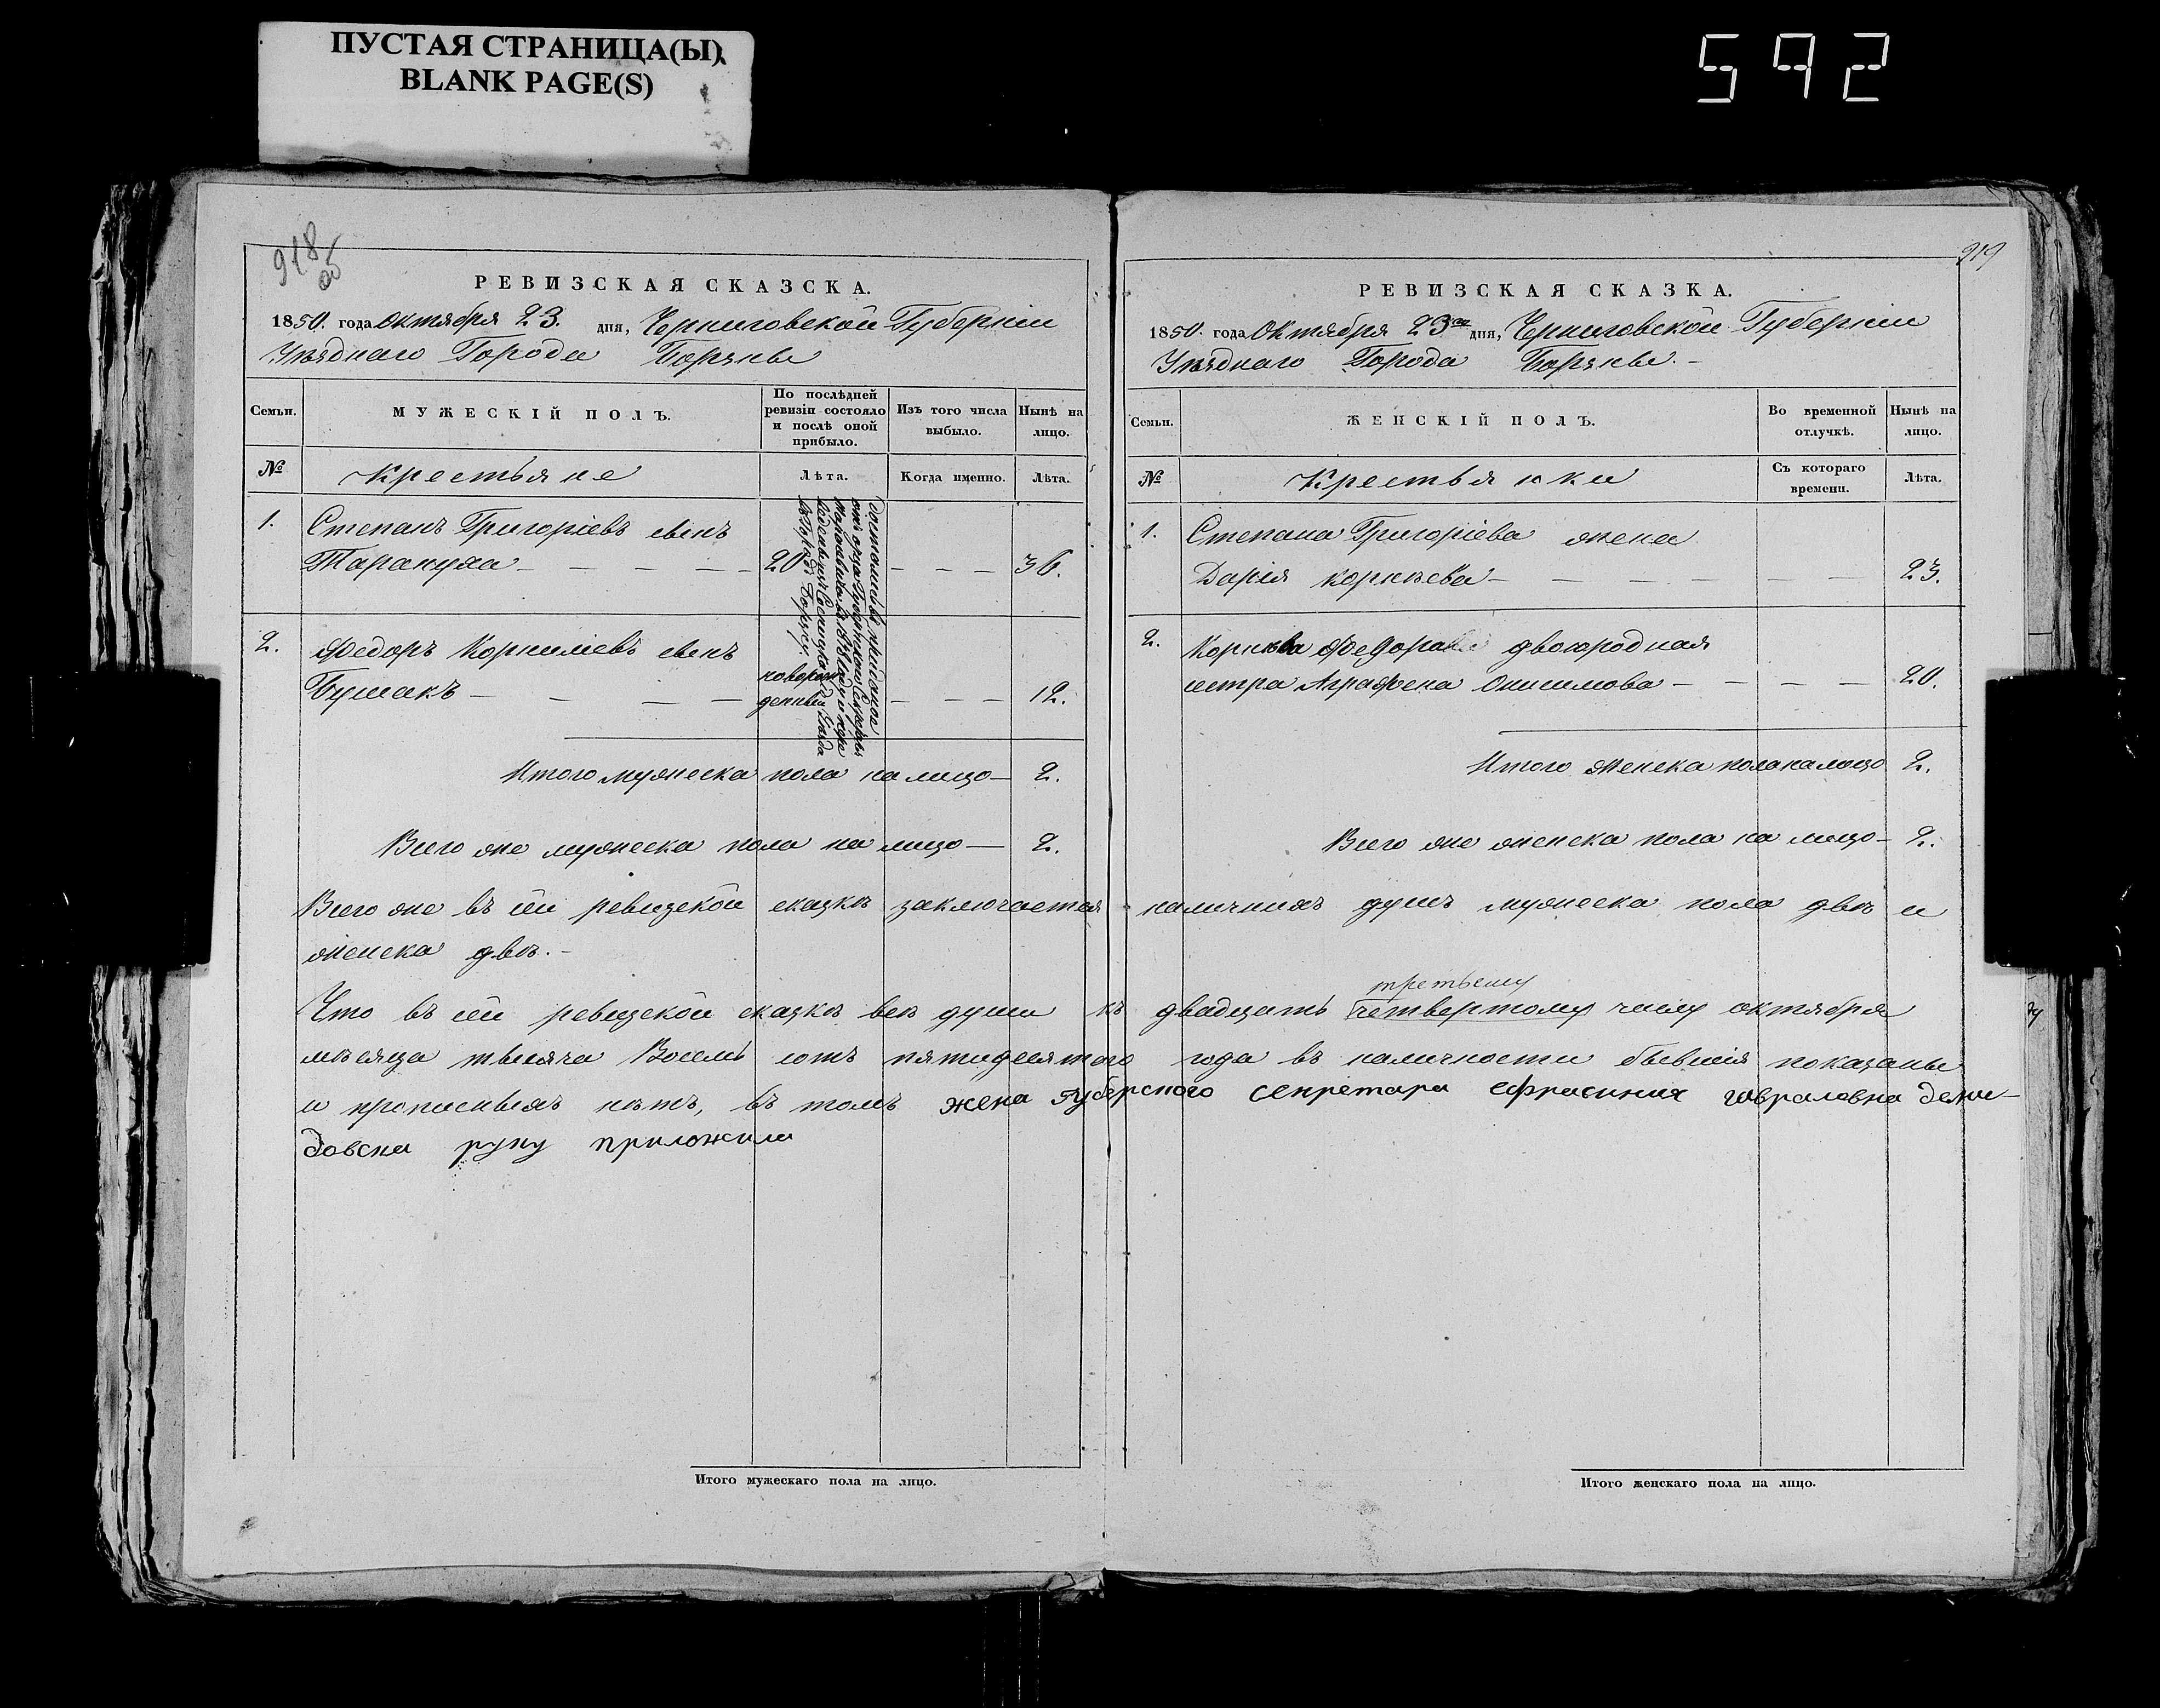 ПУСТАЯ СТРАНИЦА(Ы)
BLANK PAGE(S)
592
918
об
РЕВИЗСКАЯ СКАЗСКА.
1850. года Октября 23. дня, Черниговской Губерніи
Уѣзднаго Города Борзны
Семьи.
МУЖЕСКІЙ ПОЛЪ.
По послѣдней ревизіи состояло и послѣ оной прибыло.
Изъ того числа выбыло.
Нынѣ на лицо.
№
Крестьяне
Лѣта.
Когда именно.
Лѣта.
1.
Степанъ Григоріевъ сынъ
Тарануха — — — — — 20 — — — 36.
2.
Федоръ Корниліевъ сынъ
Бушакъ — — — — новорожденный — — — 12.
Итого мужеска пола на лицо — 2.
Всего же мужеска пола на лицо — 2.
919
РЕВИЗСКАЯ СКАЗКА.
1850. года Октября 23го дня, Черниговской Губерніи
Уѣзднаго Города Борзны. —
Семьи.
ЖЕНСКІЙ ПОЛЪ.
Во временной отлучкѣ.
Нынѣ на лицо.
№
Крестьянки
Съ котораго времени.
Лѣта.
1.
Степана Григоріева жена
Дарія Корнѣева — — — — — — 23.
2.
Корнѣва Федора двоюродная
сестра Аграфена Онисимова — — — — 20.
Итого женска пола на лицо 2.
Всего же женска пола на лицо — 2.
Всего же въ сей ревизской сказкѣ заключается наличныхъ душъ мужеска пола двѣ и
женска двѣ. —
третьему
Что въ сей ревизской сказкѣ всѣ души къ двадцать четвертому числу октября
мѣсяца тысяча Восемь сотъ пятидесятого года въ наличности бывшія показаны
и прописныхъ нѣтъ, въ томъ жена губерского секретара Ефрасиния гавраловна деми-
довска руку приложила
Итого мужескаго пола на лицо.
Итого женскаго пола на лицо.